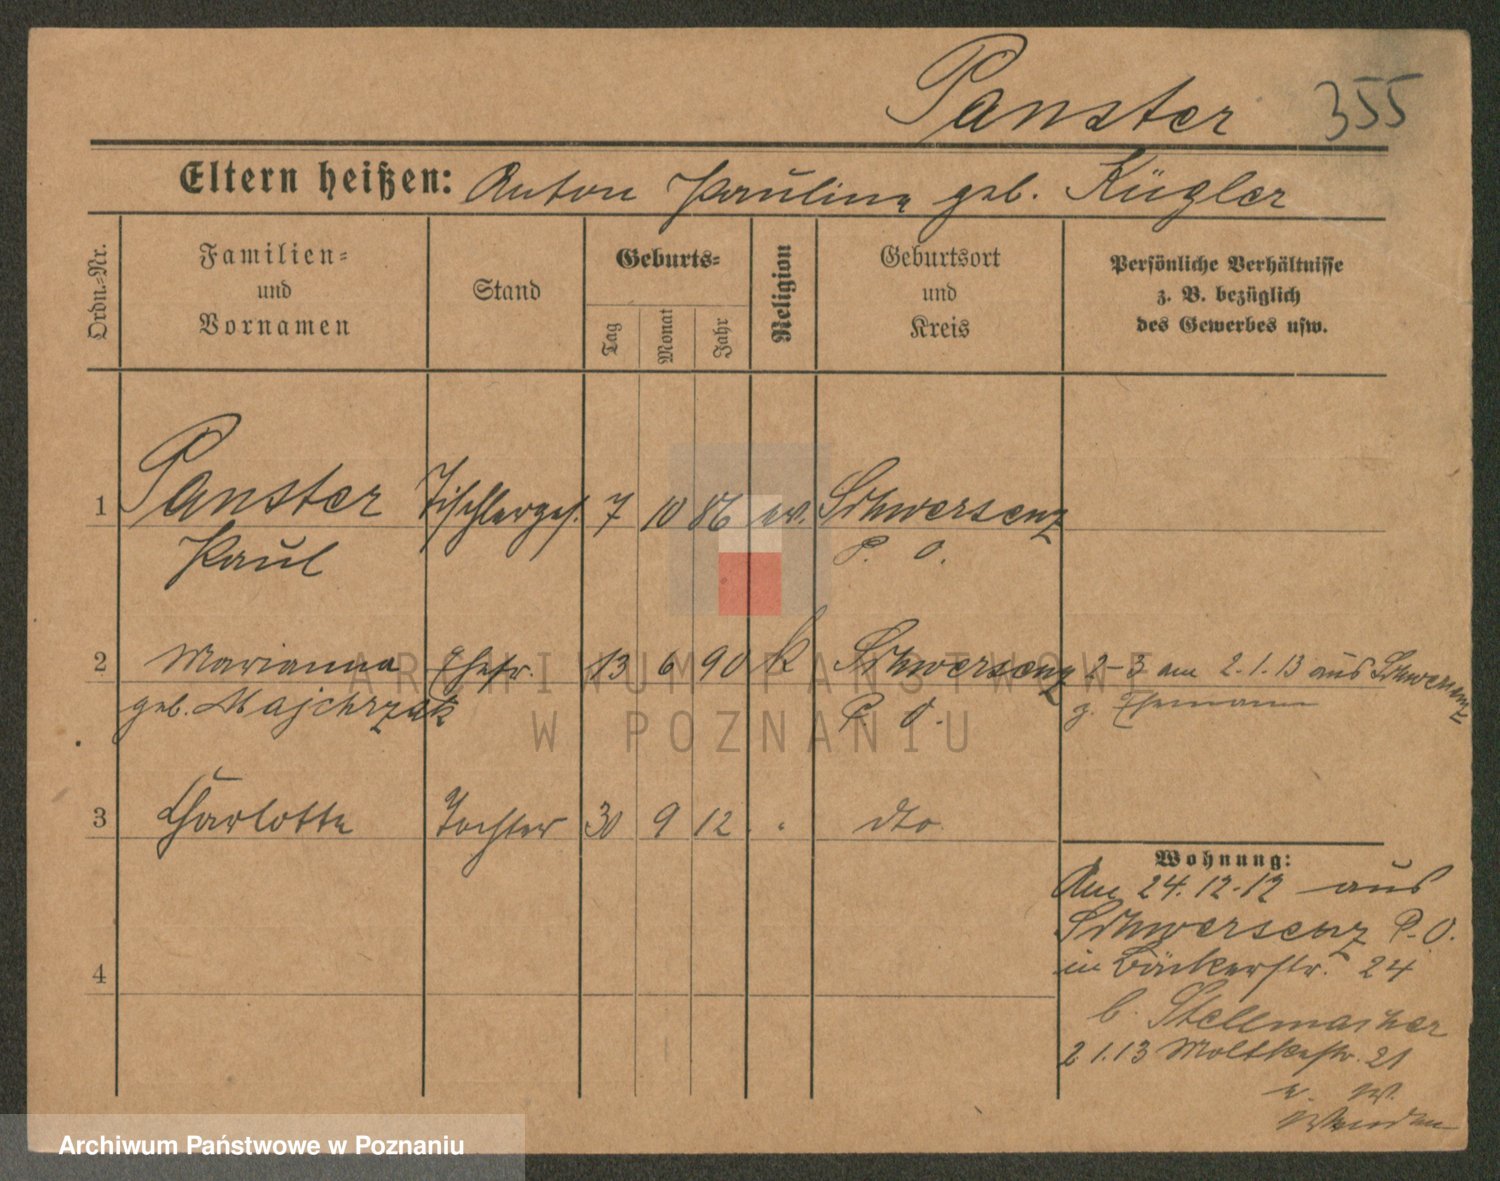 Panster 355
Eltern heißen: Anton Pauline geb. Kügler
Ordn.-Nr.
Familien-
und
Vornamen
Stand
Geburts-
Tag
Monat
Jahr
Religion
Geburtsort
und
Kreis
Persönliche Verhältnisse
z. B. bezüglich
des Gewerbes usw.
1 Panster Tischlerges. 7 10 86 ev. Schwersenz
Paul P. O.
2 Marianna Ehefr. 13 6 90 k Schwersenz 2-3 am 2.1.13 aus Schwersenz
geb. Majchrzak P. O. z. Ehemann
3 Charlotte Tochter 30 9 12 . dto
Wohnung:
Am 24.12.12 aus
Schwersenz P.O.
in Bäckerstr. 24
4
b. Stellmacher
2 1.13 Moltkestr. 21
Wenden
ARCHIWUM PAŃSTWOWE
W POZNANIU
Archiwum Państwowe w Poznaniu